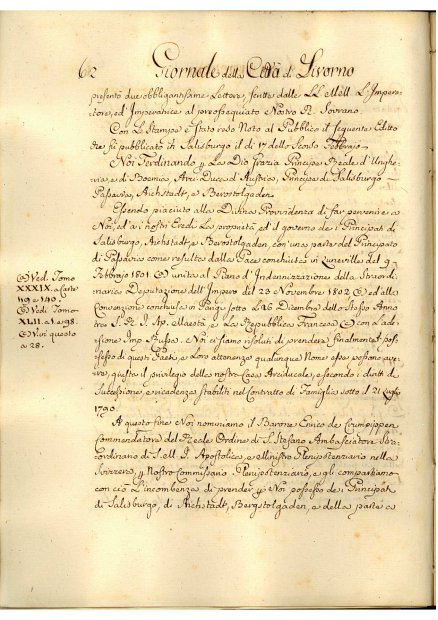 62 Giornale della Città di Livorno
presentò due obbligantissime Lettere, scritte dalle LL. MM. L'Impera-
tore, ed Imperatrice al preossequiato Nostro R. Sovrano.
Con le Stampe è stato reso Noto al Pubblico il seguente Editto
che fù pubblicato di Salisburgo il dì 17 dello Scorso Febbrajo
Noi Ferdinando per La Dio grazia Principe Reale d'Unghe-
ria, e di Boemia Arci-Duca d'Austria, Principe di Salisburgo
Passavia, Aichstadt, e Berostolgaden
Essendo piaciuto alla Divina Provvidenza di far pervenire a
Noi, ed a i nostri Eredi La proprietà, ed il governo de i Principati di
Salisburgo, Aichstadt, e Berostolgaden, con una parte del Principato
di Passavia come resulta dalla Pace conchiusa in Luneville del 9
Febbrajo 1801. unita al Piano d'Indennizazione della Straordi-
naria Deputazione dell'Impero del 23 Novembre 1802 ed alla
Convenzione conchiusa in Parigi sotto L 26 Dicembre dello Stesso Anno
tra S. M. I. Ap. Maestà e La Repubblica Francese con L'ade-
sione Imp. Russa. Noi ci siamo risoluti di prendere finalmente pos-
sesso di questi Paesi, e Loro attenenze qualunque Nome esse possano ave-
re, giusta il privilegio della nostra Casa Arciducale, e secondo i diritti di
Successione, e vicendevoli stabiliti nel Contratto di Famiglia sotto il 21
1790.
(a) Ved. Tomo
XXXIX. a carte
119 e 140.
Ved. Tomo
XLII. a 98.
Ved. in questo
a 28.
A questo fine Noi nominiamo il Barone Enrico de Crumpippen
Commendatore del Reale Ordine di S. Stefano Ambasciatore Stra-
ordinario di S. M. I. Apostolica, e Ministro Plenipotenziario nella
Svizzera, per Nostro Commissario Plenipotenziario, e gli compartiamo
con ciò L'incombenza di prender per Noi possesso de i Principati
di Salisburgo, di Aichstadt, Bergstolgaden, e della parte a